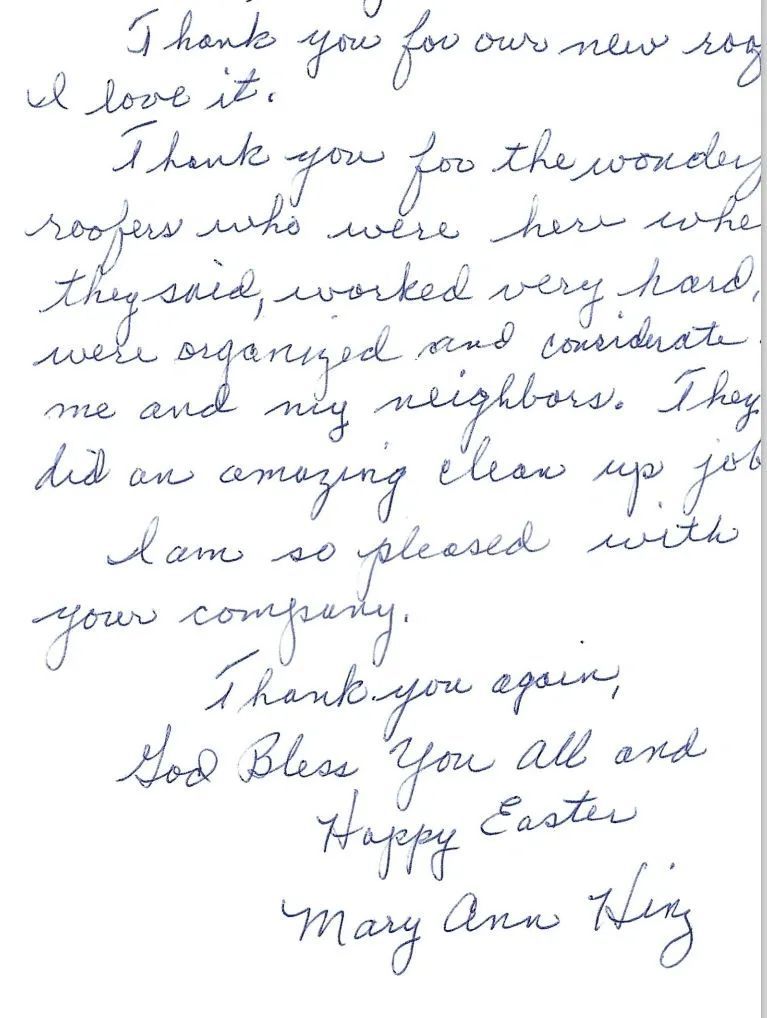 Thank you for our new roof
I love it.
Thank you for the wonder
roofers who were here whe
they said, worked very hard,
were organized and considerate
me and my neighbors. They
did an amazing clean up job
I am so pleased with
your company.
Thank you again,
God Bless You All and
Happy Easter
Mary Ann Hinz